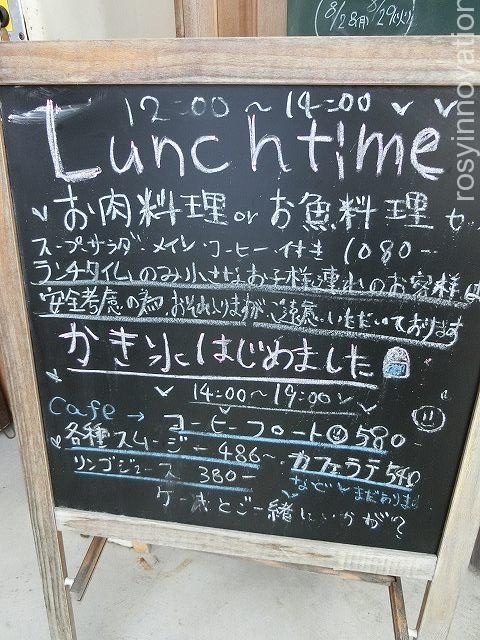 (8/28(月) 8/29(火))
rosyinnovation
12:00~14:00
Lunchtime
お肉料理 or お魚料理
スープ・サラダ・メイン・コーヒー付き 1080-
ランチタイムのみ小さなお子様連れのお客様は
安全考慮の為 おそれいりますが ご遠慮いただいております
かき氷はじめました
14:00~19:00
Cafe → コーヒーフロート 580-
各種スムージー 486~ カフェラテ 540
リンゴジュース 380- などまだあります
ケーキとご一緒にいかが?